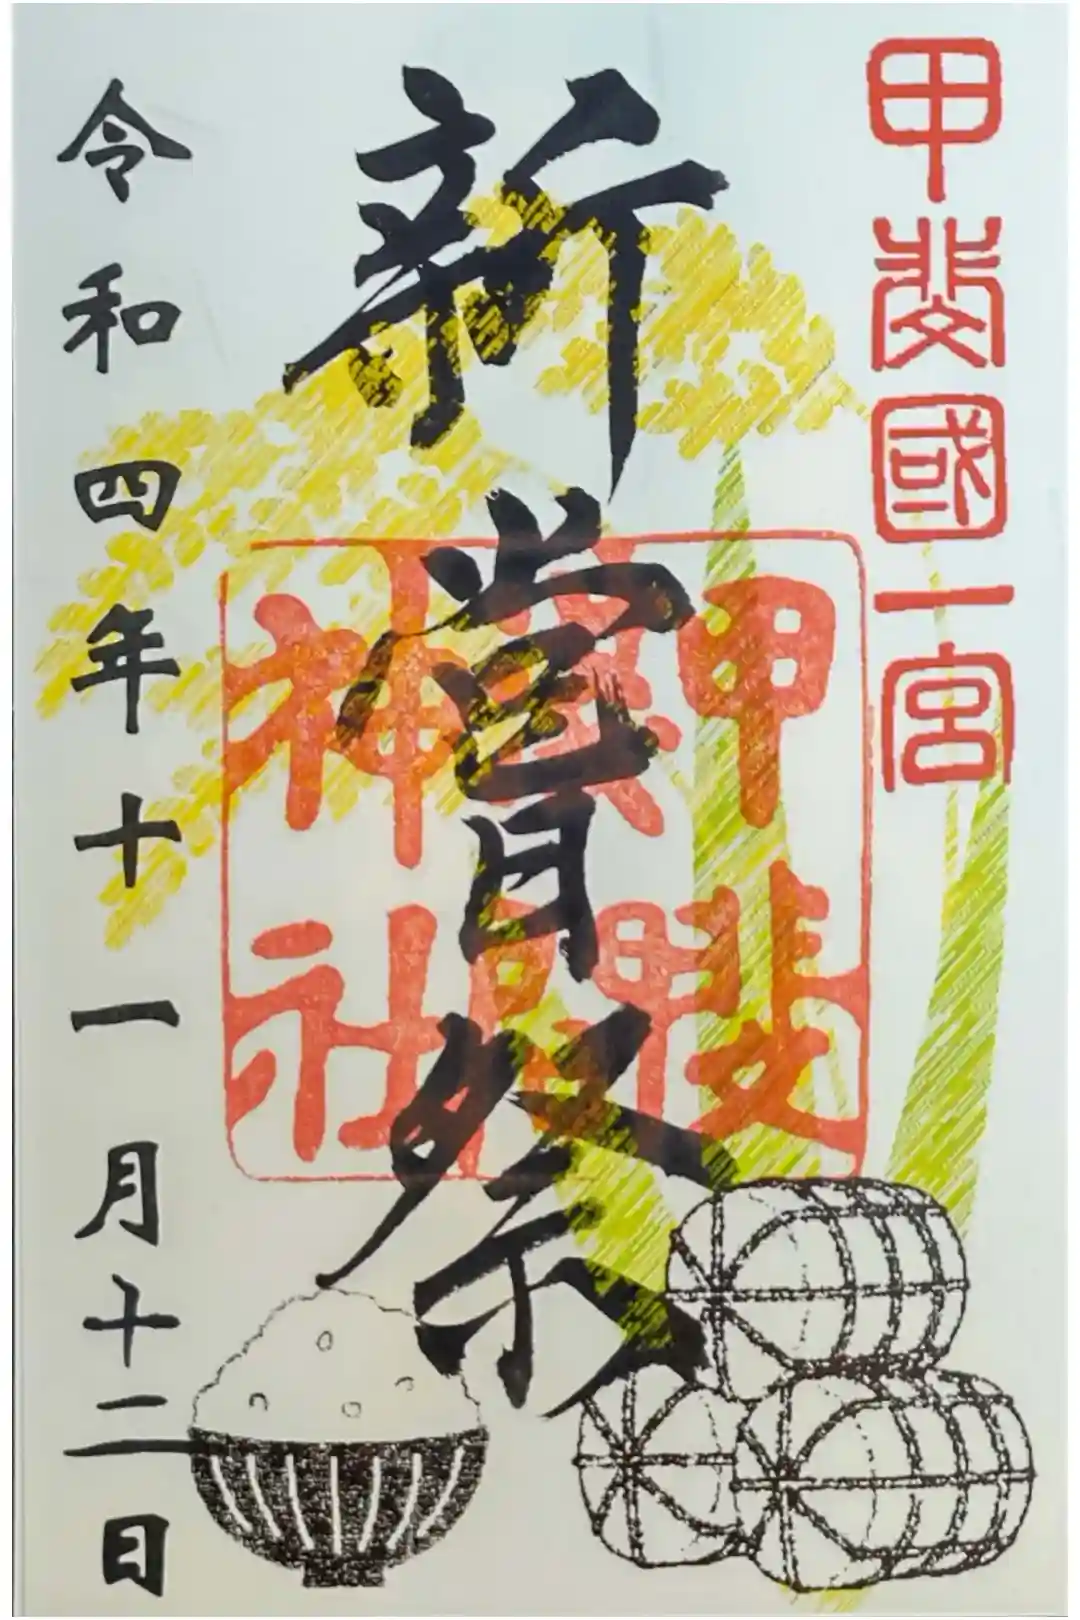 甲斐國一宮
新嘗祭
甲斐
神社
令和四年十一月十二日